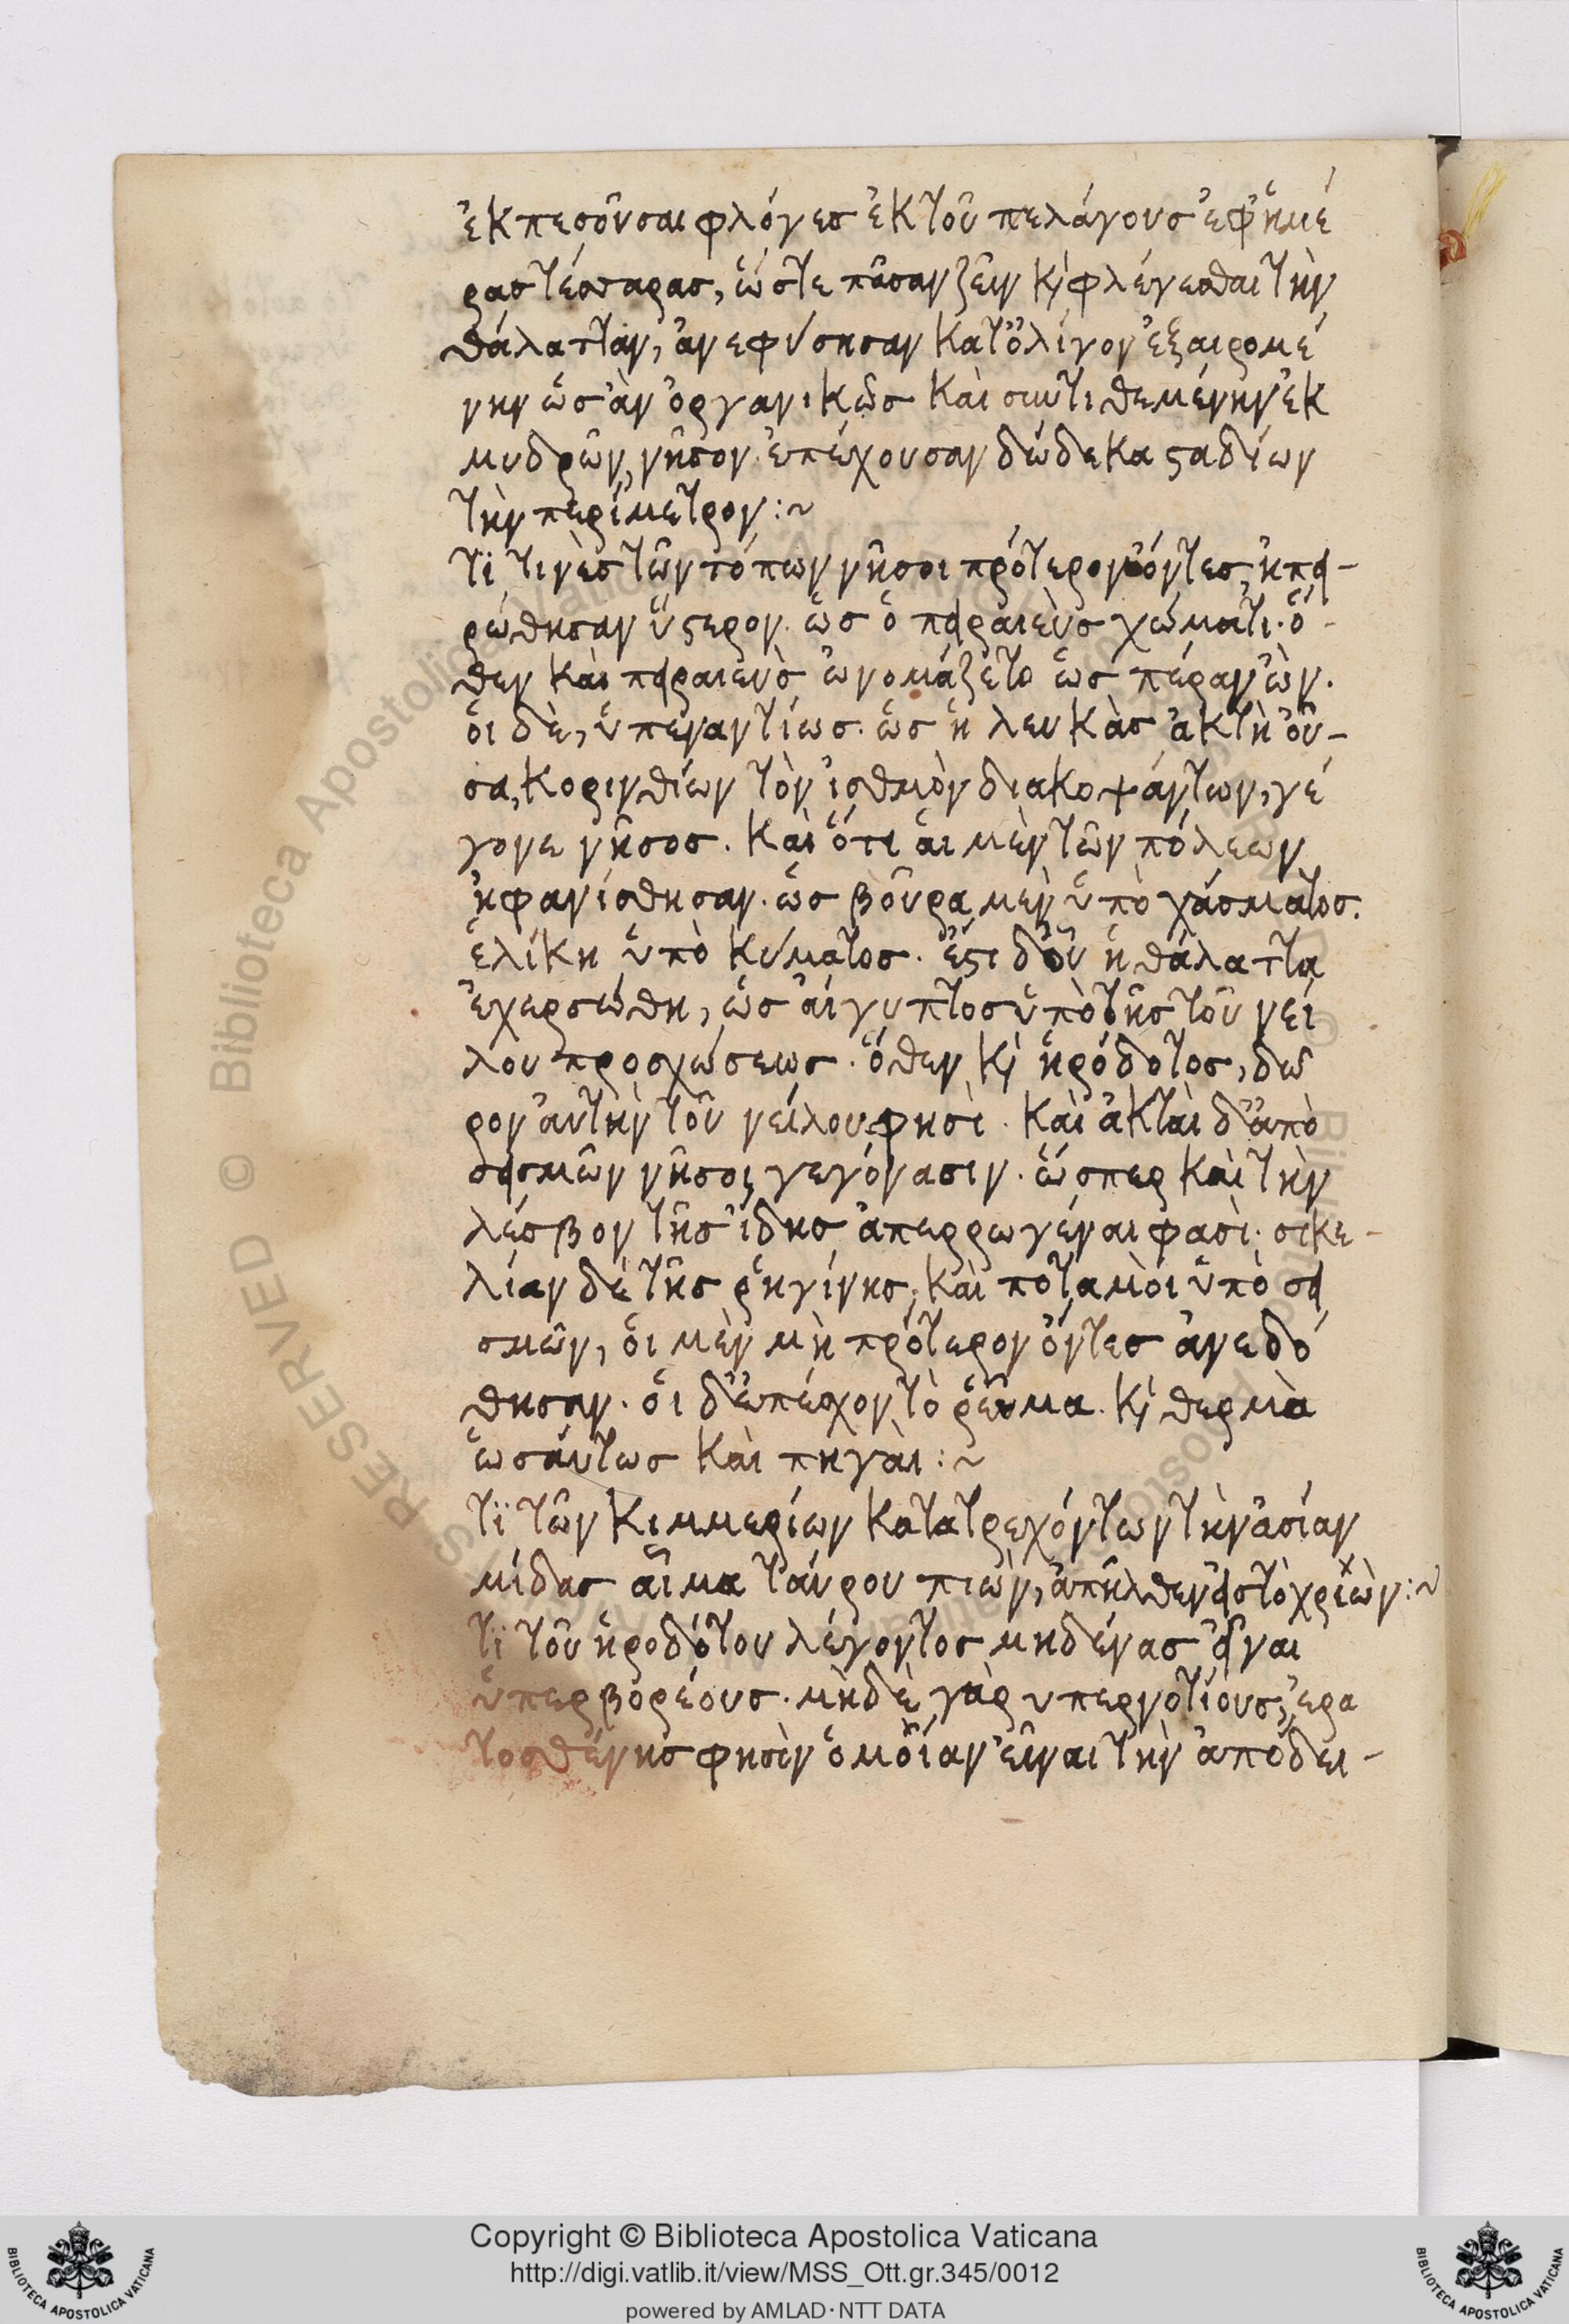 ἐκπεσοῦσαι φλόγες ἐκ τοῦ πελάγους ἐφ' ἡμέ
ρας τέσσαρας, ὥστε πᾶσαν ζεῖν κὶ φλέγεσθαι τὴν
θάλατταν, ἀνεφύσησαν κατ' ὀλίγον ἐξαιρομέ
νην ὡς ἂν ὀργανικῶς καὶ συντιθεμένην ἐκ
μυδρῶν, νῆσον ἐπέχουσαν δώδεκα σταδίων
τὴν περίμετρον :~
τϊ τινὲς τῶν τόπων νῆσοι πρότερον ὄντες, ἠπει-
ρώθησαν ὕστερον. ὡς ὁ πειραιεὺς χώματι. ὅ-
θεν καὶ πειραιεὺς ὠνομάζετο ὡς πέραν ὢν.
οἱ δὲ, ὑπεναντίως. ὡς ἡ λευκὰς ἀκτὴ οὖ-
σα, κορινθίων τὸν ἰσθμὸν διακοψάντων, γέ
γονε νῆσος. καὶ ὅτι αἱ μὲν τῶν πόλεων
ἠφανίσθησαν. ὡς βοῦρα μὲν ὑπὸ χάσματος.
ἑλίκη ὑπὸ κύματος. ἔστι δ' οὗ ἡ θάλαττα
ἐχερσώθη, ὡς αἴγυπτος ὑπὸ τῆς τοῦ νεί
λου προσχώσεως. ὅθεν κὶ ἡρόδοτος, δῶ
ρον αὐτὴν τοῦ νείλου φησὶ. καὶ ἀκταὶ δ' ἀπὸ
σεισμῶν νῆσοι γεγόνασιν. ὥσπερ καὶ τὴν
λέσβον τῆς ἴδης ἀπερρωγέναι φασὶ. σικε-
λίαν δὲ τῆς ῥηγίνης. καὶ ποταμοὶ ὑπὸ σει
σμῶν, οἱ μὲν μὴ πρότερον ὄντες ἀνεδό
θησαν. οἱ δ' ἐπέσχον τὸ ῥεῦμα. κὶ θερμὰ
ὡσαύτως καὶ πηγαὶ :~
τϊ τῶν κιμμερίων κατατρεχόντων τὴν ἀσίαν
μίδας αἷμα ταύρου πιὼν, ἀπῆλθεν εἰς τὸ χρεὼν :~
τϊ τοῦ ἡροδότου λέγοντος μηδένας εἶναι
ὑπερβορέους. μὴδὲ γὰρ υπερνοτίους, ἐρα
τοσθένης φησὶν ὁμοίαν εἶναι τὴν ἀπόδει-
Copyright © Biblioteca Apostolica Vaticana
http://digi.vatlib.it/view/MSS_Ott.gr.345/0012
powered by AMLAD·NTT DATA